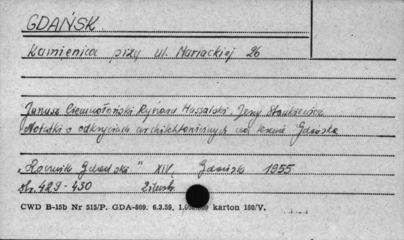 GDAŃSK
Kamienica przy ul. Mariackiej 26
Janusz Ciemnołoński Ryszard Massalski Jerzy Stankiewicz
Notatki o odkryciach architektonicznych na terenie Gdańska
"Rocznik Gdański" XIV, Gdańsk 1955
str. 429-430 2 ilustr.
CWD B-15b Nr 515/P. GDA-809. 6.3.59, karton 180/V.